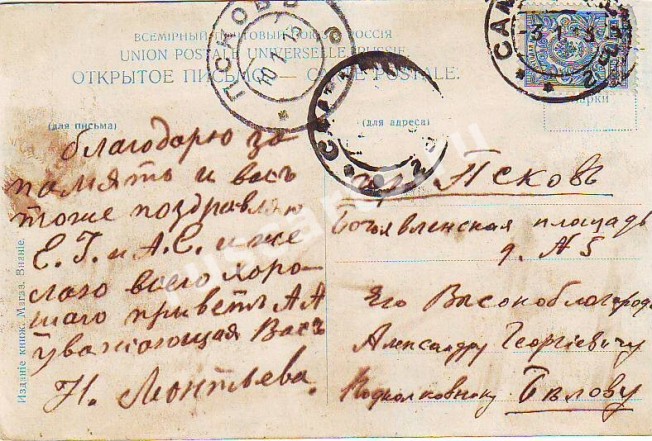 ВСЕМІРНЫЙ ПОЧТОВЫЙ СОЮЗЪ РОССІЯ
UNION POSTALE UNIVERSELLE RUSSIE
ОТКРЫТОЕ ПИСЬМО — CARTE POSTALE.
ПСКОВЪ
10 1 15
(для письма)
(для адреса)
марки
Благодарю за
память и васъ
тоже поздравляю
Е. Г. и А. Е. и же
лаю всего хоро-
шаго приветъ А А
уважающая Васъ
Н. Леонтьева.
Псковъ
Богоявленская площадь
д. № 5
Его Высокоблагород
Александру Георгіевичу
Подполковнику Бѣлову
Изданіе книж. Магаз. Вилніе.